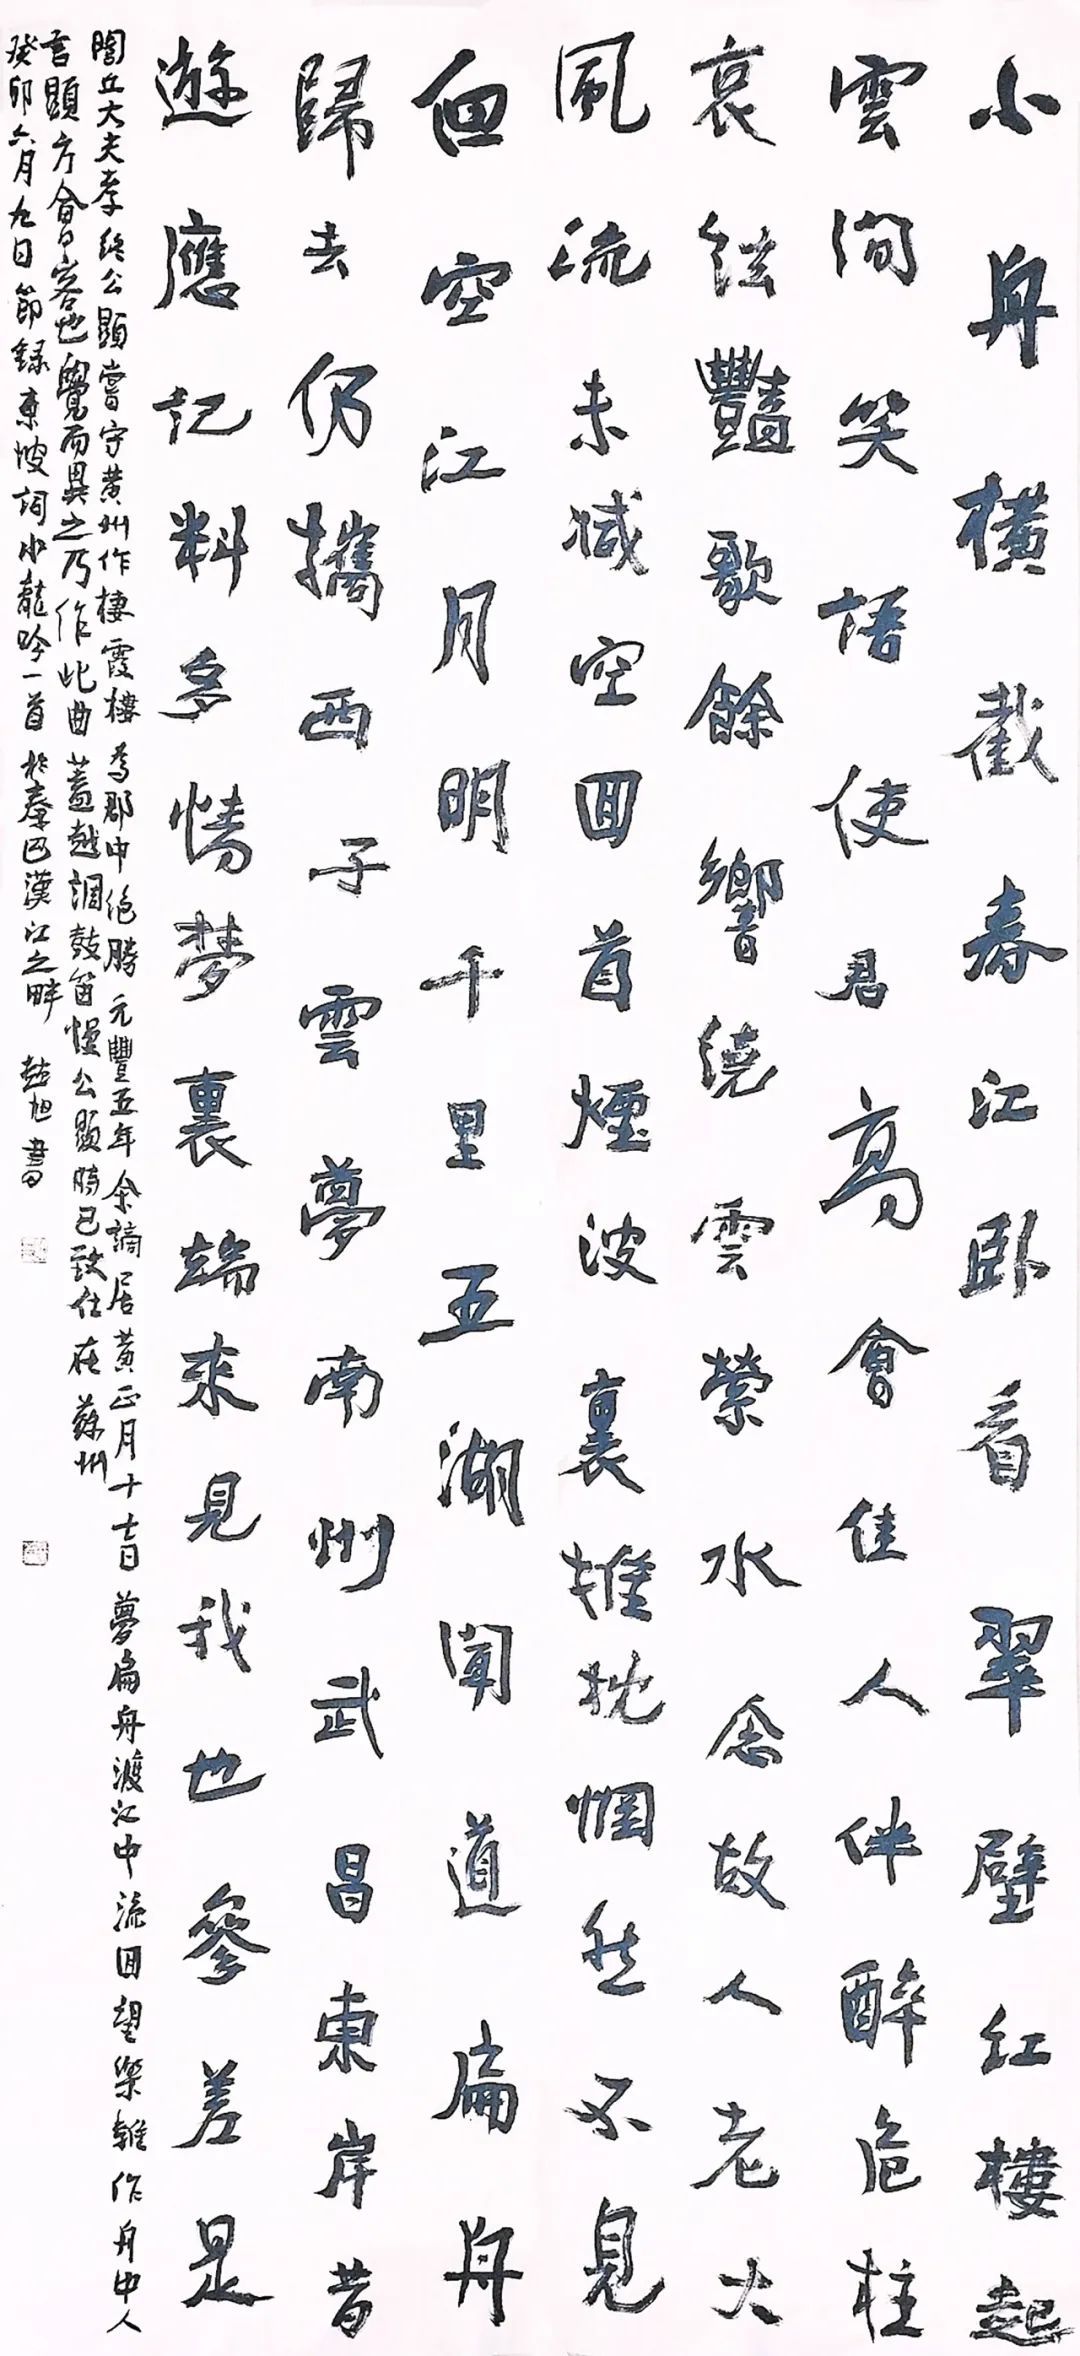 小舟橫截春江臥看翠壁紅樓起
雲間笑語使君高會佳人伴醉危柱
哀絃豔歌餘響繞雲縈水念故人老大
風流未減空回首煙波裏推枕惘然不見
但空江月明千里五湖聞道扁舟
歸去仍攜西子雲夢南州武昌東岸昔
遊應記料多情夢裏端來見我也參差是
閭丘大夫孝終公顯嘗守黃州作棲霞樓為郡中絕勝元豐五年余謫居黃正月十七日夢扁舟渡江中流回望樂雜作舟中人
言顯方會客也覺而異之乃作此曲蓋越調鼓笛慢公顯時已致仕在蘇州
癸卯六月九日節錄東坡詞水龍吟一首於秦巴漢江之畔 趙旭書